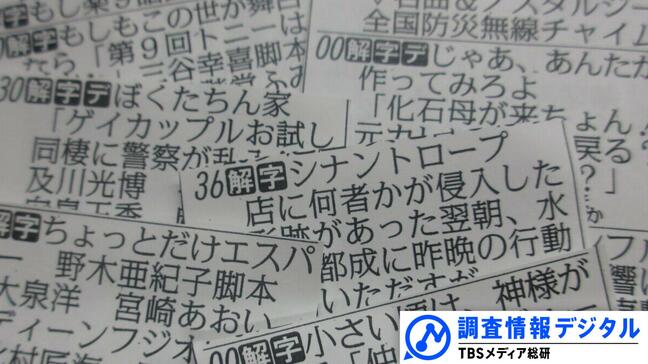 もし楽
解字もしもこの世が舞台
「第9回トニーは
三谷幸喜脚本
30解字デぼくたちん家
「ゲイカップルお試し
同棲に警察が乱
及川光博
解字ちょっとだけエスパ
野木亜紀子脚本
大泉洋 宮﨑あおい
ディーンフジオ
全国防災無線チャイム
00解字デじゃあ、あんたが
作ってみろよ
「化石母が来ちょん
戻る
36解字シナントロープ
店に何者かが侵入した
跡があった翌朝、水
都成に昨晩の行動
00解字小さい
神様が
調査情報デジタル
TBSメディア総研